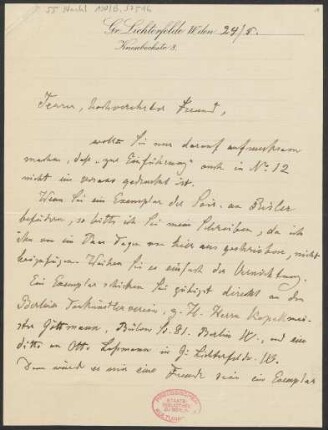 55 Nachl
Gr. Lichterfelde W. den 24/5.
Knesebeckstr. 9.
Teurer, hochverehrter Freund,
wollte Sie nur darauf aufmerksam
machen, daß „zur Einführung“ auch in No 12
nicht im voraus gedruckt ist.
Wenn Sie ein Exemplar der an
befördern, so bitte ich Sie mein Schreiben, da ich
ihm vor ein Paar Tagen von hier aus geschrieben, nicht
beizufügen. Weihen Sie es einfach der Vernichtung.
Ein Exemplar schicken Sie gütigst direkt an den
Berliner Tonkünstlerverein, z. H. Herrn Kapellmei-
ster Göttmann, Bülow St. 81. Berlin W., und eins
ditto an Ott. Leßmann in Gr. Lichterfelde. W.
Dann würde es mir eine Freude sein ein Exemplar
STAATS-
BIBLIOTHEK